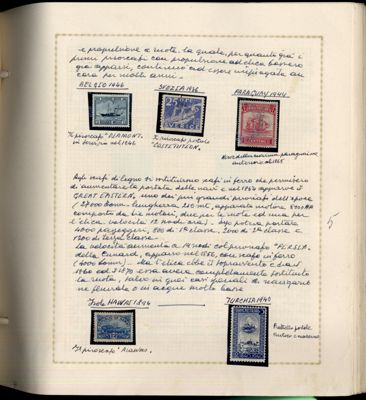 e propulsione a ruota. la quale, per quanto già i
primi piroscafi con propulsione ad elica fossero
già apparsi, continuò ad essere impiegata an
cora per molti anni.
BELGIO 1946
SVEZIA 1936
PARAGUAY 1944
25
SVERIGE
Il piroscafo "DIAMANT"
in servizio nel 1846
Il piroscafo postale
Nave della marina paraguaiana
Agli scafi di legno si sostituirono scafi in ferro che permisero
di aumentare la portata delle navi e nel 1860 apparve il
GREAT EASTERN, uno dei più grandi piroscafi dell'epoca
(27000 tonn. lunghezza 210 mt, apparato motore
composto da due motori, due per le ruote ed uno per
l'elica, velocità 13 nodi orari. Essa poteva portare
4000 passeggeri, 800 di 1ª classe, 2000 di 2ª classe e
1200 di terza classe.
La velocità aumentò a 14 nodi col piroscafo "PERSIA"
della Cunard, apparso nel 1856, con scafo in ferro
(4000 tonn.). Ma l'elica ebbe il sopravvento e dal
1860 al 1870 essa aveva completamente sostituito
la ruota, salvo in quei casi speciali di navigazio
ne fluviale o in acque molto basse
5
Isole HAWAI 1894
TURCHIA 1940
Il piroscafo
Battello postale